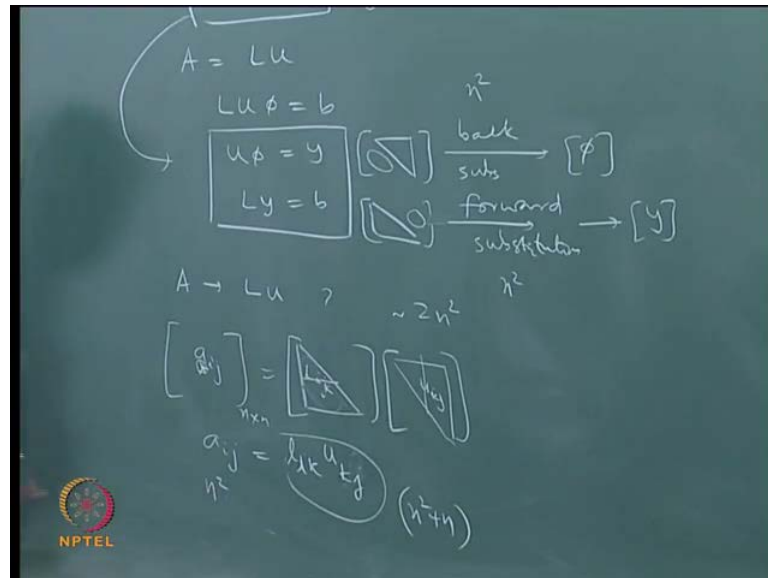 A = LU
LUφ = b
n²
Uφ = y [0] back subs → [φ]
Ly = b [0] forward substitution → [y]
n²
A → LU ?
~2n²
[aij]n×n = [lik] [ukj]
aij = lik ukj
n²
(n²+n)
NPTEL